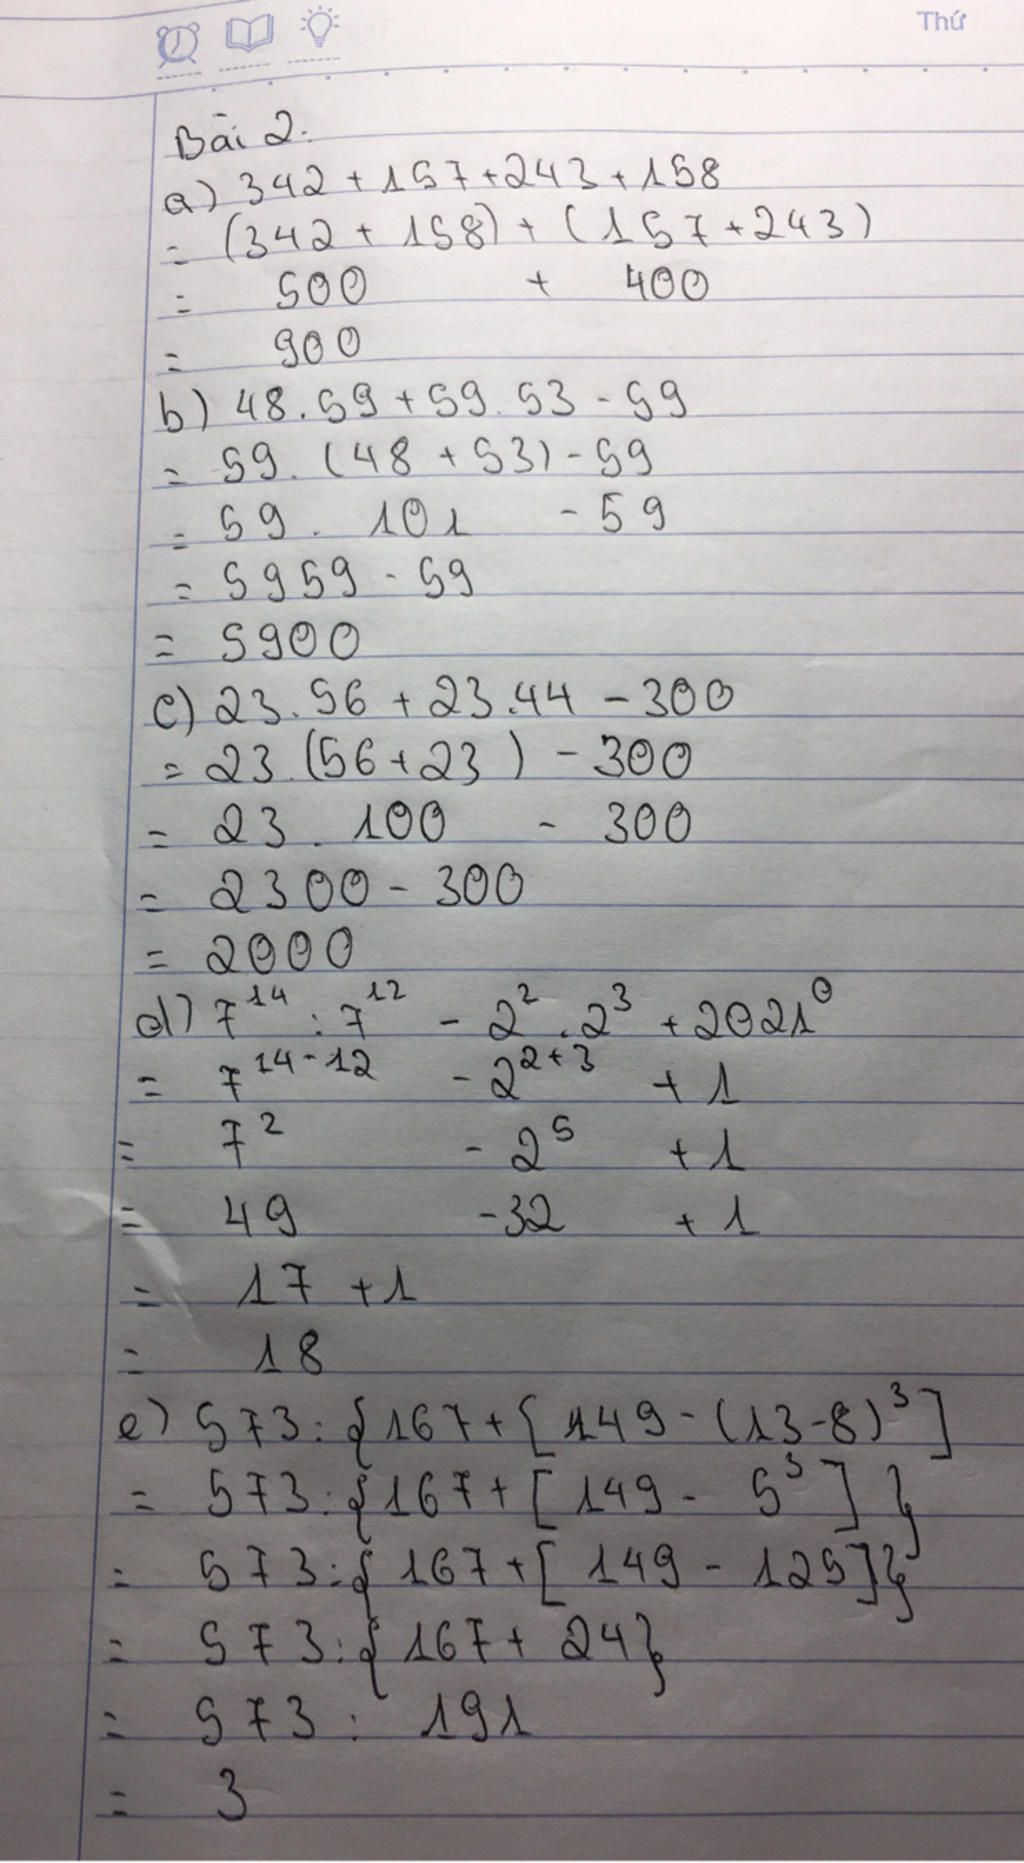 Thứ
Bài 2.
a) 342 + 157 + 243 + 158
= (342 + 158) + (157 + 243)
= 500 + 400
= 900
b) 48 . 59 + 59 . 53 - 59
= 59 . (48 + 53) - 59
= 59 . 101 - 59
= 5959 - 59
= 5900
c) 23 . 56 + 23 . 44 - 300
= 23 . (56 + 23) - 300
= 23 . 100 - 300
= 2300 - 300
= 2000
d) 7¹⁴ : 7¹² - 2² . 2³ + 2021⁰
= 7¹⁴⁻¹² - 2²⁺³ + 1
= 7² - 2⁵ + 1
= 49 - 32 + 1
= 17 + 1
= 18
e) 573 : {167 + [149 - (13 - 8)³]
= 573 : {167 + [149 - 5³]}
= 573 : {167 + [149 - 125]}
= 573 : {167 + 24}
= 573 : 191
= 3